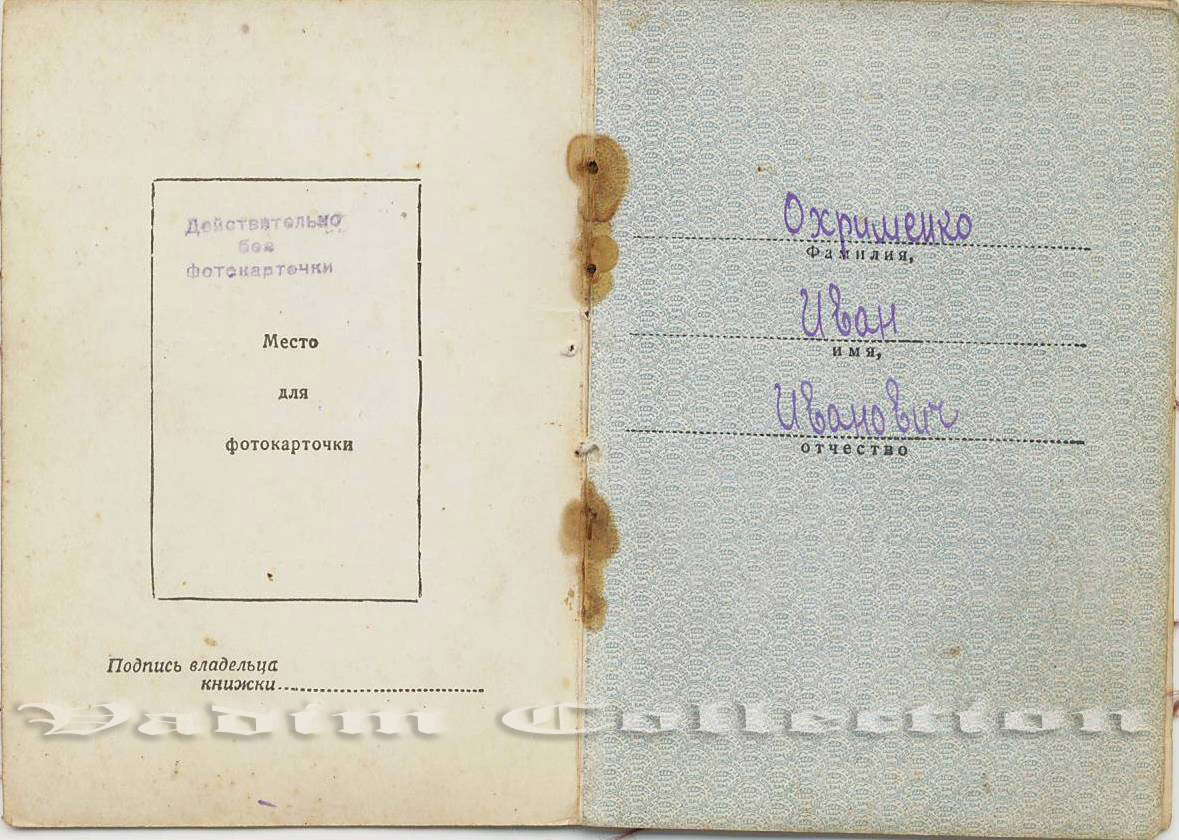 Действительно
без
фотокарточки
Место
для
фотокарточки
Подпись владельца
книжки
Охрименко
Фамилия,
Иван
имя,
Иванович
отчество
Vadim Collection